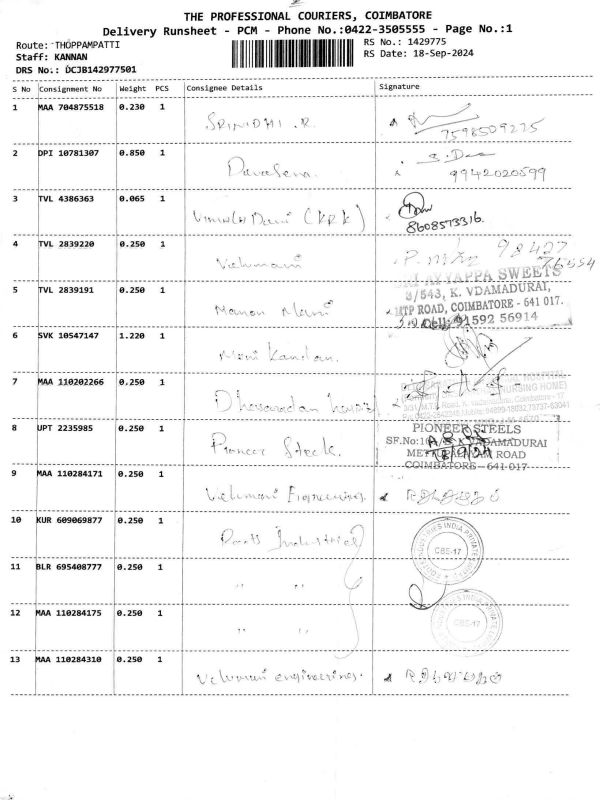 THE PROFESSIONAL COURIERS, COIMBATORE
Delivery Runsheet - PCM - Phone No.:0422-3505555 - Page No.:1
Route: THOPPAMPATTI
RS No.: 1429775
Staff: KANNAN
RS Date: 18-Sep-2024
DRS No.: DCJB142977501
S No Consignment No Weight PCS Consignee Details Signature
1 MAA 704875518 0.230 1 SRINIDHI .R.
7598509275
2 DPI 10781307 0.850 1
9942020599
3 TVL 4386363 0.065 1
8608573316.
4 TVL 2839220 0.250 1 Velumani
98427
76554
SRI AYYAPPA SWEETS
3/543, K. VDAMADURAI,
MTP ROAD, COIMBATORE - 641 017.
Cell: 91592 56914
5 TVL 2839191 0.250 1 Manon Mani
6 SVK 10547147 1.220 1 Mani Kandan.
7 MAA 110202266 0.250 1
(NURSING HOME)
8 UPT 2235985 0.250 1 Pioneer
PIONEER STEELS
VADAMADURAI
METTUPALAYAM ROAD
COIMBATORE - 641 017
9 MAA 110284171 0.250 1 Velumani Engineerings.
10 KUR 609069877 0.250 1 Industries
CBE-17
11 BLR 695408777 0.250 1 " "
12 MAA 110284175 0.250 1 " "
CBE-17
13 MAA 110284310 0.250 1 Velumani engineerings.